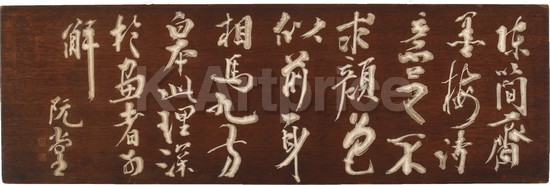 陳簡齋
墨梅詩
意足不
求顔色
似前身
相馬九方
皐此理深
於畫者
解
阮堂
K-Artprice